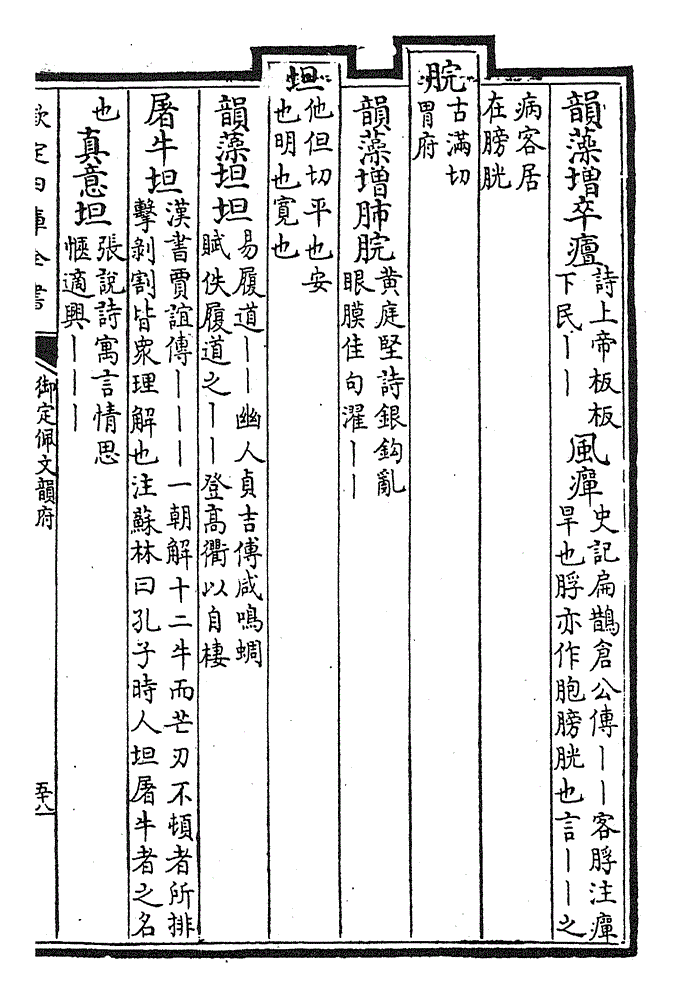 韻藻增卒癉
詩上帝板板
下民丨丨
風癉
史記扁鵲倉公傳丨丨客脬注癉
旱也脬亦作胞膀胱也言丨丨之
病客居
在膀胱
脘
古滿切
胃府
韻藻增肺脘
黄庭堅詩銀鈎亂
眼膜佳句濯丨丨
坦
他但切平也安
也明也寛也
韻藻坦坦
易履道丨丨幽人貞吉傅咸鳴蜩
賦佚履道之丨丨登高衢以自棲
屠牛坦
漢書賈誼傳丨丨丨一朝解十二牛而芒刃不頓者所排
擊剝割皆衆理解也注蘇林曰孔子時人坦屠牛者之名
也
真意坦
張説詩寓言情思
愜適興丨丨丨
欽定四庫全書
御定佩文韻府
五十八